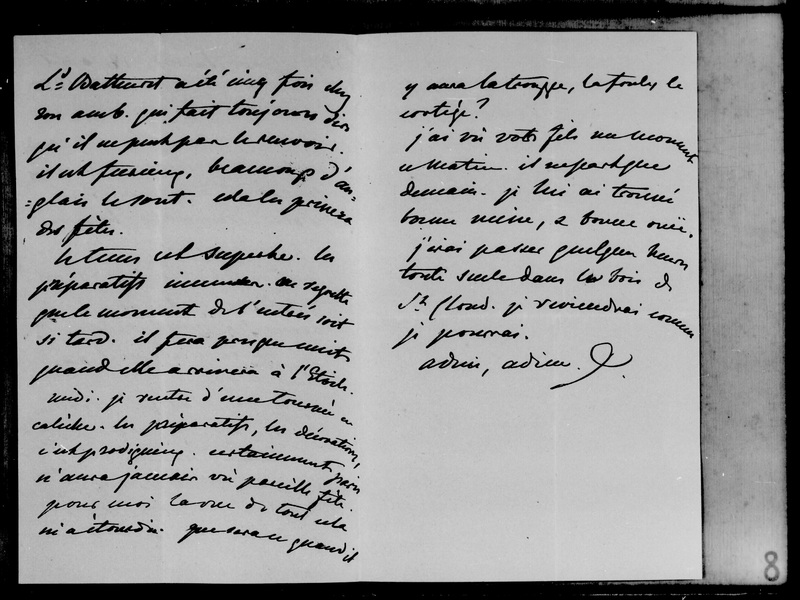 Ld Bathurst a été cinq fois chez
son amb. qui fait toujours dire
qu'il ne peut pas le recevoir.
il est furieux, beaucoup d'an-
=glais le sont. cela les privera
des fêtes.
le tems est superbe. les
préparatifs immenses. on regrette
que le moment de l'entrée soit
si tard. il fera presque nuit
quand elle arrivera à l'Etoile.
midi. je rentre d'une tournée en
calèche. les préparatifs, les décorations,
c'est prodigieux. certainement Paris
n'aura jamais vu pareille fête.
pour moi la vue de tout cela
m'a étourdie. que sera ce quand il
y aura la troupe, la foule, le
cortége?
j'ai vu votre fils un moment
ce matin. il ne part que
demain. je lui ai trouvé
bonne mine, &amp; bonne
j'irai passer quelques heures
toute seule dans les bois de
St Cloud. je reviendrai comme
je pourrai.
adieu, adieu.
8